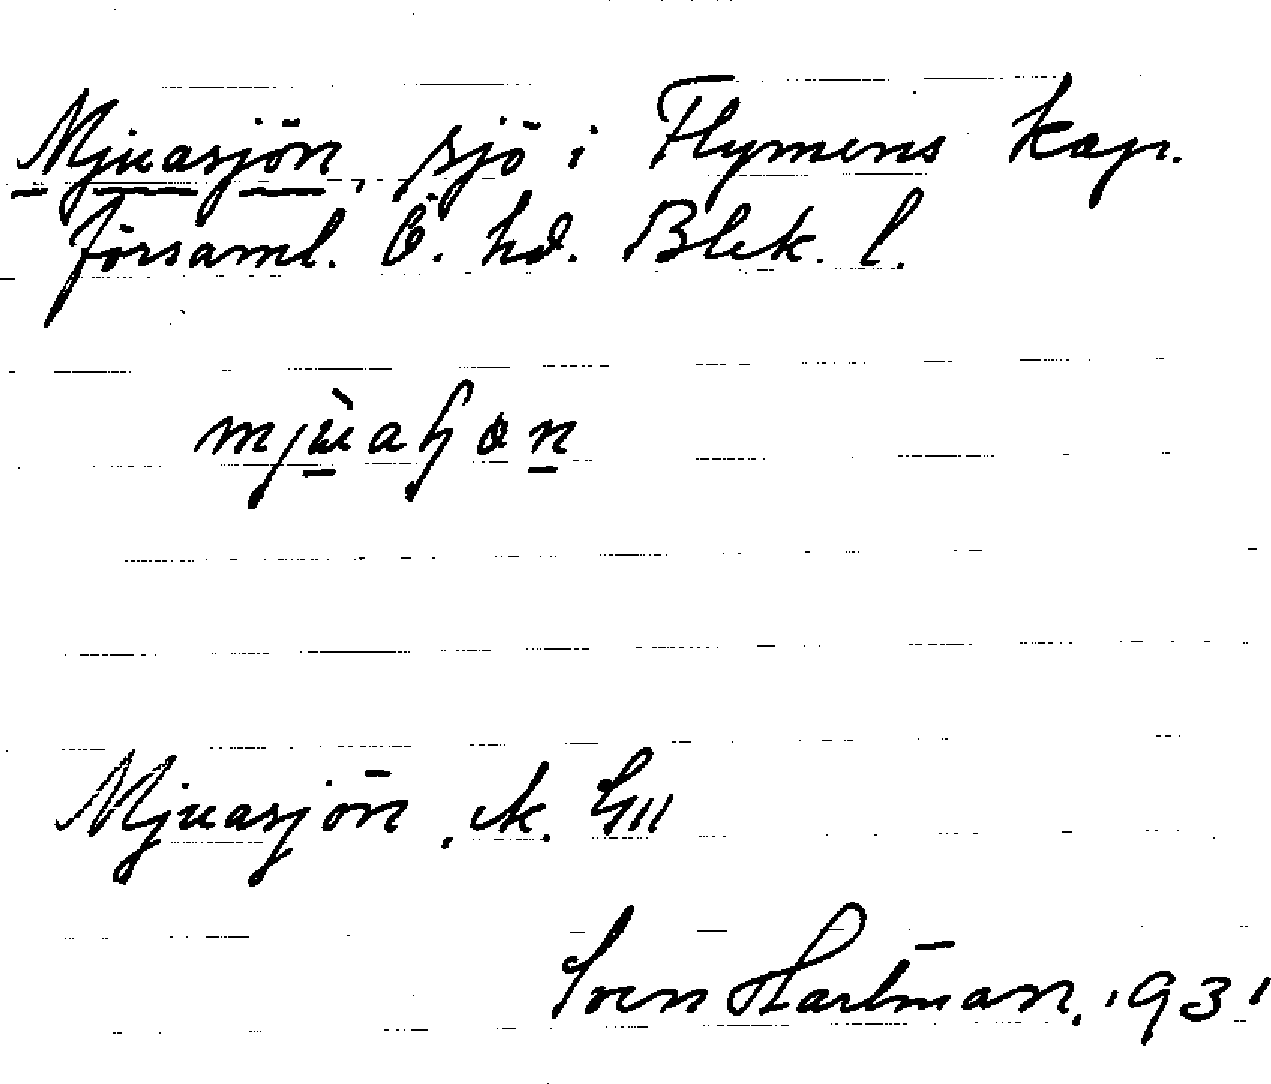 Mjuasjön, sjö i Flymens kap.
församl. Ö. hd. Blek. l.
Mjuasjön, ek.
Sven Hartman. 1931